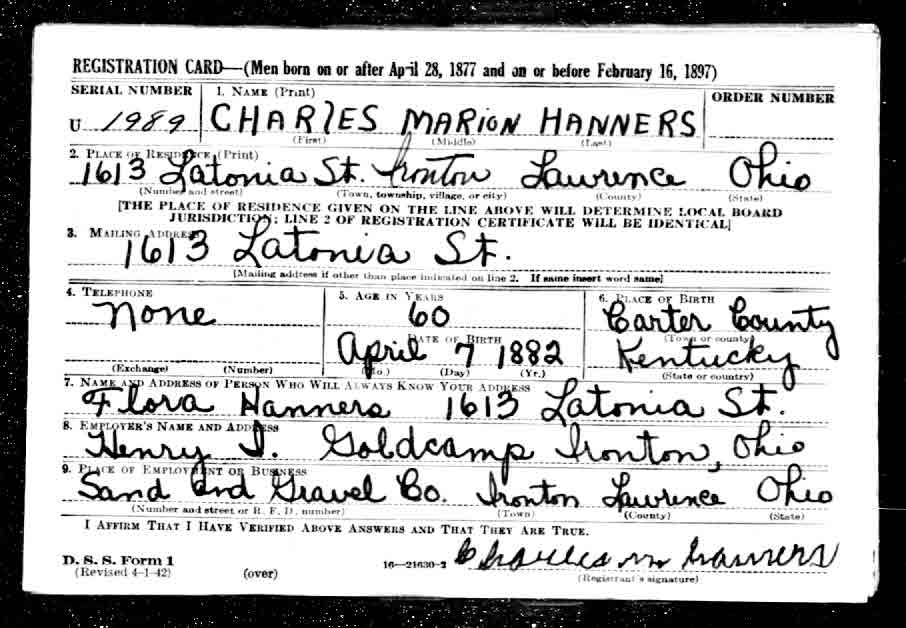 REGISTRATION CARD—(Men born on or after April 28, 1877 and on or before February 16, 1897)
SERIAL NUMBER 1. NAME (Print) ORDER NUMBER
U 1989 CHARlES MARION HANNERS
(First) (Middle) (Last)
2. PLACE OF RESIDENCE (Print)
1613 Latonia St. Ironton Lawrence Ohio
(Number and street) (Town, township, village, or city) (County) (State)
[THE PLACE OF RESIDENCE GIVEN ON THE LINE ABOVE WILL DETERMINE LOCAL BOARD
JURISDICTION; LINE 2 OF REGISTRATION CERTIFICATE WILL BE IDENTICAL]
3. MAILING ADDRESS
1613 Latonia St.
[Mailing address if other than place indicated on line 2. If same insert word same]
4. TELEPHONE 5. AGE IN YEARS 6. PLACE OF BIRTH
None 60 Carter County
DATE OF BIRTH (Town or county)
April 7 1882 Kentucky
(Exchange) (Number) (Mo.) (Day) (Yr.) (State or country)
7. NAME AND ADDRESS OF PERSON WHO WILL ALWAYS KNOW YOUR ADDRESS
Flora Hanners 1613 Latonia St.
8. EMPLOYER'S NAME AND ADDRESS
Henry I. Goldcamp Ironton, Ohio
9. PLACE OF EMPLOYMENT OR BUSINESS
Sand and Gravel Co. Ironton Lawrence Ohio
(Number and street or R. F. D. number) (Town) (County) (State)
I AFFIRM THAT I HAVE VERIFIED ABOVE ANSWERS AND THAT THEY ARE TRUE.
D. S. S. Form 1
(Revised 4-1-42) (over) 16—21630-2 Charles m Hanners
(Registrant's signature)